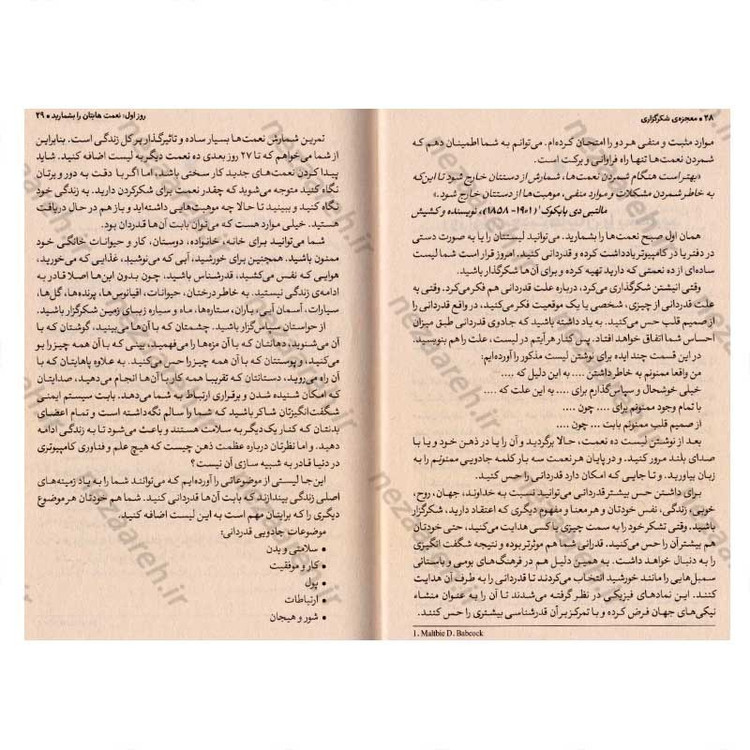 ۲۸ • معجزه‌ی شکرگزاری
موارد مثبت و منفی هر دو را امتحان کرده‌ام. می‌توانم به شما اطمینان دهم که
شمردن نعمت‌ها تنها راه فراوانی و برکت است.
«بهتر است هنگام شمردن نعمت‌ها، شمارش از دستتان خارج شود تا این‌که
به خاطر شمردن مشکلات و موارد منفی، موهبت‌ها از دستتان خارج شود.»
مالتبی دی بابکوک۱ (۱۹۰۱- ۱۸۵۸)، نویسنده و کشیش
همان اول صبح نعمت‌ها را بشمارید. می‌توانید لیستتان را یا به صورت دستی
در دفتر یا در کامپیوتر یادداشت کرده و قدردانی کنید. امروز قرار است شما لیست
ساده‌ای از ده نعمتی که دارید تهیه کرده و برای آن‌ها شکرگذار باشید.
وقتی انیشتن شکرگذاری می‌کرد، درباره علت قدردانی هم فکر می‌کرد. وقتی به
علت قدردانی از چیزی، شخصی یا یک موقعیت فکر می‌کنید، در واقع قدردانی را
از صمیم قلب حس می‌کنید. به یاد داشته باشید که جادوی قدردانی طبق میزان
احساس شما اتفاق خواهد افتاد. پس کنار هرآیتم در لیست، علت را هم بنویسید.
در این قسمت چند ایده برای نوشتن لیست مذکور را آورده‌ایم:
من واقعا ممنونم به خاطر داشتن .... به این دلیل که ....
خیلی خوشحال و سپاس‌گذارم برای .... به این علت که ....
با تمام وجود ممنونم برای .... چون ....
از صمیم قلب ممنونم بابت .... چون ....
بعد از نوشتن لیست ده نعمت، حالا برگردید و آن را یا در ذهن خود و یا با
صدای بلند مرور کنید. و در پایان هر نعمت سه بار کلمه جادویی ممنونم را به
زبان بیاورید و تا جایی که امکان دارد قدردانی را حس کنید.
برای داشتن حس بیشتر قدردانی می‌توانید نسبت به خداوند، جهان، روح،
خوبی، زندگی، نفس خودتان و هر معنا و مفهوم دیگری که اعتقاد دارید، شکرگزار
باشید. وقتی تشکر خود را به سمت چیزی یا کسی هدایت می‌کنید، حتی خودتان
هم بیشتر آن را حس می‌کنید. قدرانی شما هم موثرتر بوده و نتیجه شگفت انگیزی
را به دنبال خواهد داشت. به همین دلیل هم در فرهنگ‌های بومی و باستانی
سمبل‌هایی را مانند خورشید انتخاب می‌کردند تا قدردانی را به طرف آن هدایت
کنند. این نمادهای فیزیکی در نظر گرفته می‌شدند تا آن را به عنوان منشاء
نیکی‌های جهان فرض کرده و با تمرکز بر آن قدرشناسی بیشتری را حس کنند.
1. Maltbie D. Babcock
روز اول: نعمت هایتان را بشمارید • ۲۹
تمرین شمارش نعمت‌ها بسیار ساده و تاثیرگذار بر کل زندگی است. بنابراین
از شما می‌خواهم که تا ۲۷ روز بعدی ده نعمت دیگر به لیست اضافه کنید. شاید
پیدا کردن نعمت‌های جدید کار سختی باشد، اما اگر با دقت به دور و برتان
نگاه کنید متوجه می‌شوید که چقدر نعمت برای شکر کردن دارید. به زندگی خود
نگاه کنید و ببینید تا حالا چه موهبت‌هایی داشته‌اید و باز هم در حال دریافت
هستید. خیلی موارد هست که می‌توان بابت آن‌ها قدردان بود.
شما می‌توانید برای خانه، خانواده، دوستان، کار و حیوانات خانگی خود
ممنون باشید. همچنین برای خورشید، آبی که می‌نوشید، غذایی که می‌خورید،
هوایی که نفس می‌کشید، قدرشناس باشید. چون بدون این‌ها اصلا قادر به
ادامه‌ی زندگی نیستید. به خاطر درختان، حیوانات، اقیانوس‌ها، پرنده‌ها، گل‌ها،
سیارات، آسمان آبی، باران، ستاره‌ها، ماه و سیاره زیبای زمین شکرگزار باشید.
از حواستان سپاس‌گزار باشید. چشمتان که با آن‌ها می‌بینید، گوشتان که با
آن می‌شنوید، دهانتان که با آن مزه‌ها را می‌فهمید، بینی که با آن همه چیز را بو
می‌کنید، و پوستتان که با آن همه چیز را حس می‌کنید. به علاوه پاهایتان که با
آن راه می‌روید، دستانتان که تقریبا همه کار با آن‌ها انجام می‌دهید، صدایتان
که امکان شنیده شدن و برقراری ارتباط به شما می‌دهد. بابت سیستم ایمنی
شگفت‌انگیزتان شاکر باشید که شما را سالم نگه‌داشته است و تمام اعضای
بدنتان که کنار یک دیگر به سلامت هستند و باعث می‌شود تا به زندگی ادامه
دهید. و اما نظرتان درباره عظمت ذهن چیست که هیچ علم و فناوری کامپیوتری
در دنیا قادر به شبیه سازی آن نیست؟
این جا لیستی از موضوعاتی را آورده‌ایم که می‌توانند شما را به یاد زمینه‌های
اصلی زندگی بیندازند که بابت آن‌ها قدردانی کنید. شما هم خودتان هر موضوع
دیگری را که برایتان مهم است به این لیست اضافه کنید.
موضوعات جادویی قدردانی:
• سلامتی و بدن
• کار و موفقیت
• پول
• ارتباطات
• شور و هیجان
nezaareh.ir